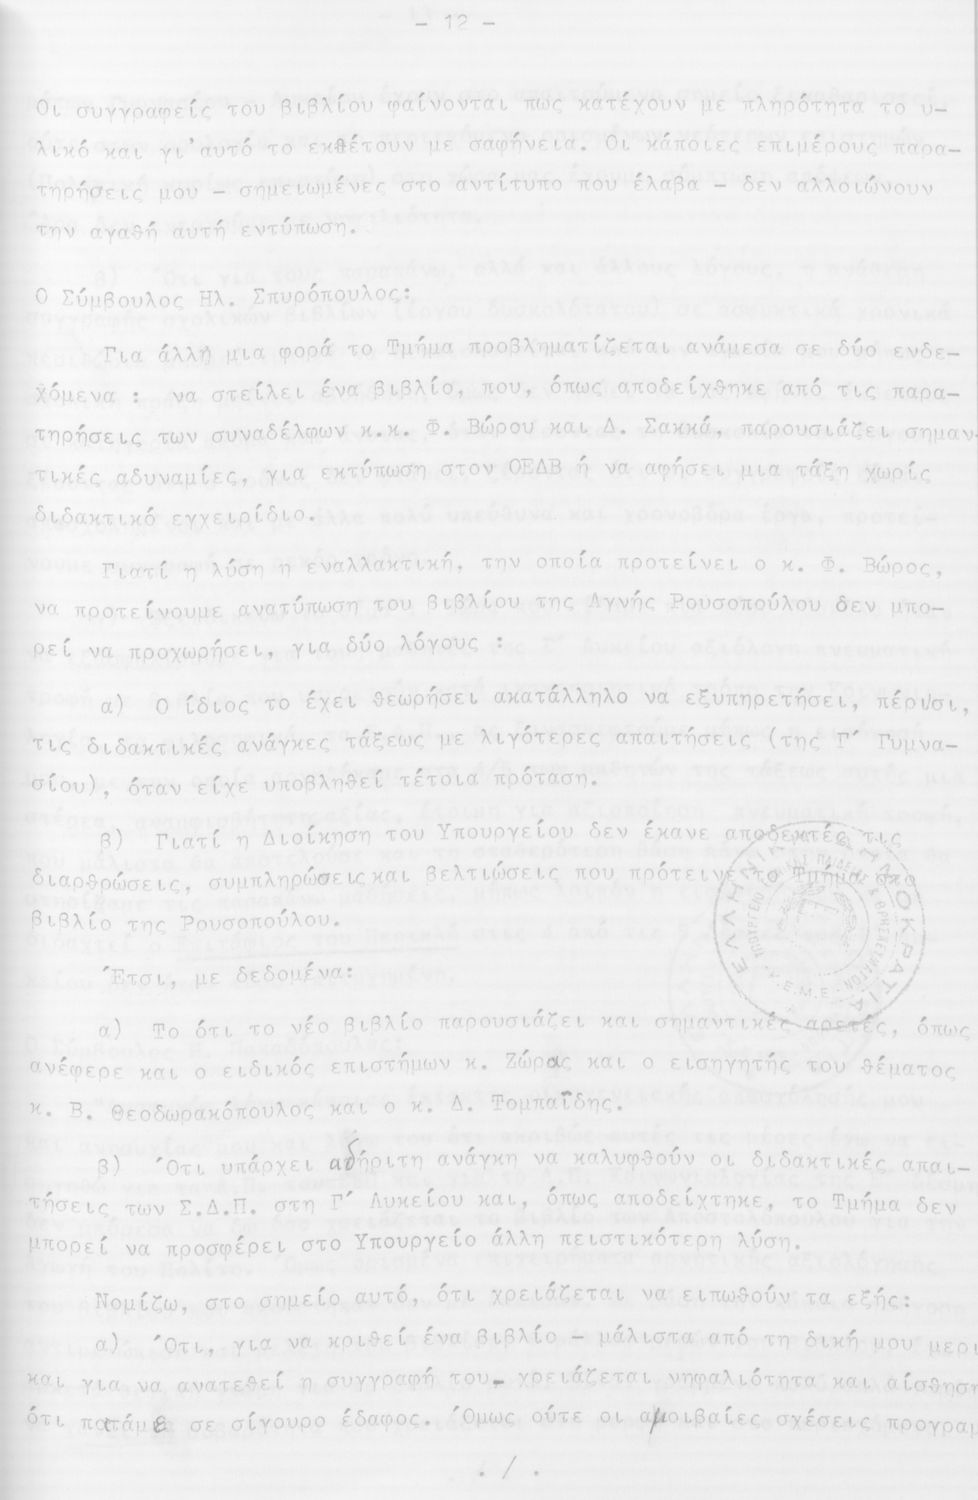 - 12 -
Οι συγγραφείς του βιβλίου φαίνονται πως κατέχουν με πληρότητα το υ-
λικό και γι'αυτό το εκθέτουν με σαφήνεια. Οι κάποιες επιμέρους παρα-
τηρήσεις μου - σημειωμένες στο αντίτυπο που έλαβα - δεν αλλοιώνουν
την αγαθή αυτή εντύπωση.
Ο Σύμβουλος Ηλ. Σπυρόπουλος:
Για άλλη μια φορά το Τμήμα προβληματίζεται ανάμεσα σε δύο ενδε-
χόμενα : να στείλει ένα βιβλίο, που, όπως αποδείχθηκε από τις παρα-
τηρήσεις των συναδέλφων κ.κ. Φ. Βώρου και Δ. Σακκά, παρουσιάζει σημαν-
τικές αδυναμίες, για εκτύπωση στον ΟΕΔΒ ή να αφήσει μια τάξη χωρίς
διδακτικό εγχειρίδιο.
Γιατί η λύση η εναλλακτική, την οποία προτείνει ο κ. Φ. Βώρος,
να προτείνουμε ανατύπωση του βιβλίου της Αγνής Ρουσοπούλου δεν μπο-
ρεί να προχωρήσει, για δύο λόγους :
α) Ο ίδιος το έχει θεωρήσει ακατάλληλο να εξυπηρετήσει, πέρυσι,
τις διδακτικές ανάγκες τάξεως με λιγότερες απαιτήσεις (της Γ' Γυμνα-
σίου), όταν είχε υποβληθεί τέτοια πρόταση.
β) Γιατί η Διοίκηση του Υπουργείου δεν έκανε αποδεκτές τις
διαρθρώσεις, συμπληρώσεις και βελτιώσεις που πρότεινε το Τμήμα στο
βιβλίο της Ρουσοπούλου.
Έτσι, με δεδομένα:
α) Το ότι το νέο βιβλίο παρουσιάζει και σημαντικές αρετές, όπως
ανέφερε και ο ειδικός επιστήμων κ. Ζώρας και ο εισηγητής του θέματος
κ. Β. Θεοδωρακόπουλος και ο κ. Δ. Τομπαΐδης.
β) Ότι υπάρχει αδήριτη ανάγκη να καλυφθούν οι διδακτικές απαι-
τήσεις των Σ.Δ.Π. στη Γ' Λυκείου και, όπως αποδείχτηκε, το Τμήμα δεν
μπορεί να προσφέρει στο Υπουργείο άλλη πειστικότερη λύση.
Νομίζω, στο σημείο αυτό, ότι χρειάζεται να ειπωθούν τα εξής:
α) Ότι, για να κριθεί ένα βιβλίο - μάλιστα από τη δική μου μερι
και για να ανατεθεί η συγγραφή του- χρειάζεται νηφαλιότητα και αίσθηση
ότι πατάμε σε σίγουρο έδαφος. Όμως ούτε οι αμοιβαίες σχέσεις προγραμ
./.
ΕΛΛΗΝΙΚΗ ΔΗΜΟΚΡΑΤΙΑ
Κ.Ε.Μ.Ε.